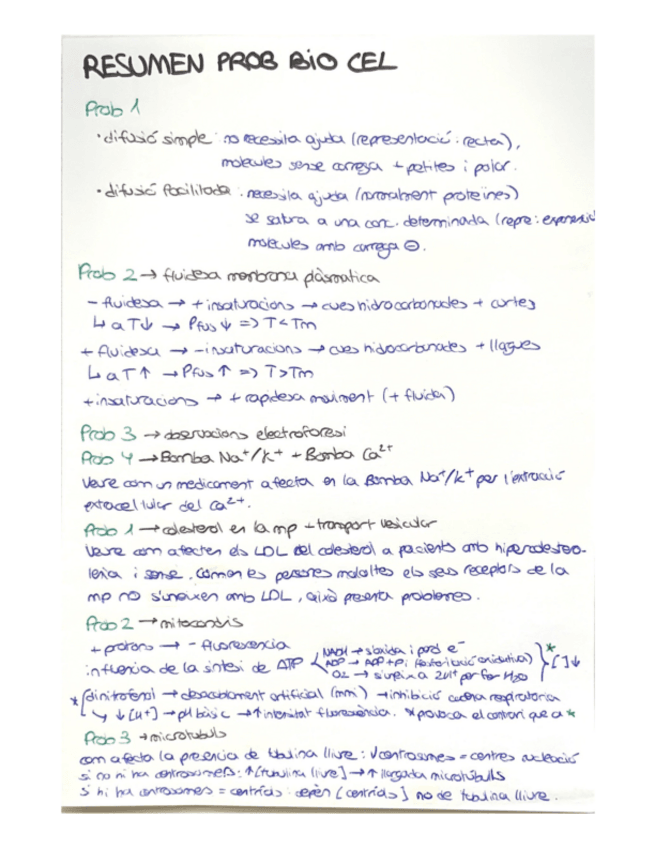 RESUMEN PROB BIO CEL
Prob 1
· difusió simple: no necessita ajuda (representació: recta),
molecules sense carrega + petites i polar.
· difusió facilitada: necessita ajuda (normalment proteïnes)
se satura a una conc. determinada (repre:
molecules amb carrega ⊖.
Prob 2 → fluidesa membrana plasmatica
- fluidesa → + insaturacions → cues hidrocarbonades + curtes
↳ a T↓ → Pfus ↓ => T < Tm
+ fluidesa → - insaturacions → cues hidocarbonades + llagues
↳ a T ↑ → Pfus ↑ => T > Tm
+ insaturacions → + rapidesa moviment (+ fluida)
Prob 3 → observacions electroforesi
Prob 4 → Bomba Na⁺/K⁺ + Bomba Ca²⁺
Veure com un medicament afecta en la Bomba Na⁺/K⁺ per l'extracció
extracel·lular del Ca²⁺.
Prob 1 → colesterol en la mp + transport vesicular
Veure com afecten els LDL del colesterol a pacients amb hipercoleste-
lemia i sense. Com en les persones malaltes els seus receptors de la
mp no s'uneixen amb LDL, això presenta problemes.
Prob 2 → mitocondris
+ protons → - fluorescencia
influencia de la sintesi de ATP
NADH → s'oxida i perd e⁻
ADP → ADP + Pi (fosforilació oxidativa)
O₂ → s'uneix a 2H⁺ per fer H₂O
} [ ] ↓ *
* (dinitrofenol → desacoblament artificial (mm) → inhibició cadena respiratoria
↳ ↓ [H⁺] → pH bàsic → ↑ intensitat fluorescència. * provoca el contrari que a *
Prob 3 → microtubuls
com afecta la presencia de tubulina lliure: √centrosomes = centres nucleació
si no hi ha centrosomes: ↑ [tubulina lliure] → ↑ llargada microtúbulls
si hi ha centrosomes = centríols: depèn [centríols] no de tubulina lliure.